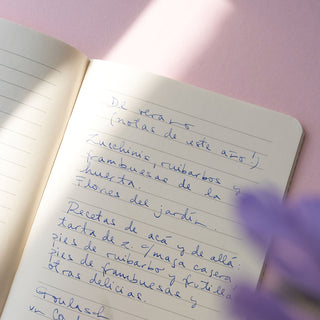 De verano
(notas de este año!)
Zucchinis, ruibarbos y
frambuesas de la
huerta.
Flores del jardín.
Recetas de acá y de allá:
tarta de z. c/masa casera
pies de ruibarbo y frutilla
pies de frambuesas y
otras delicias.
Goulash